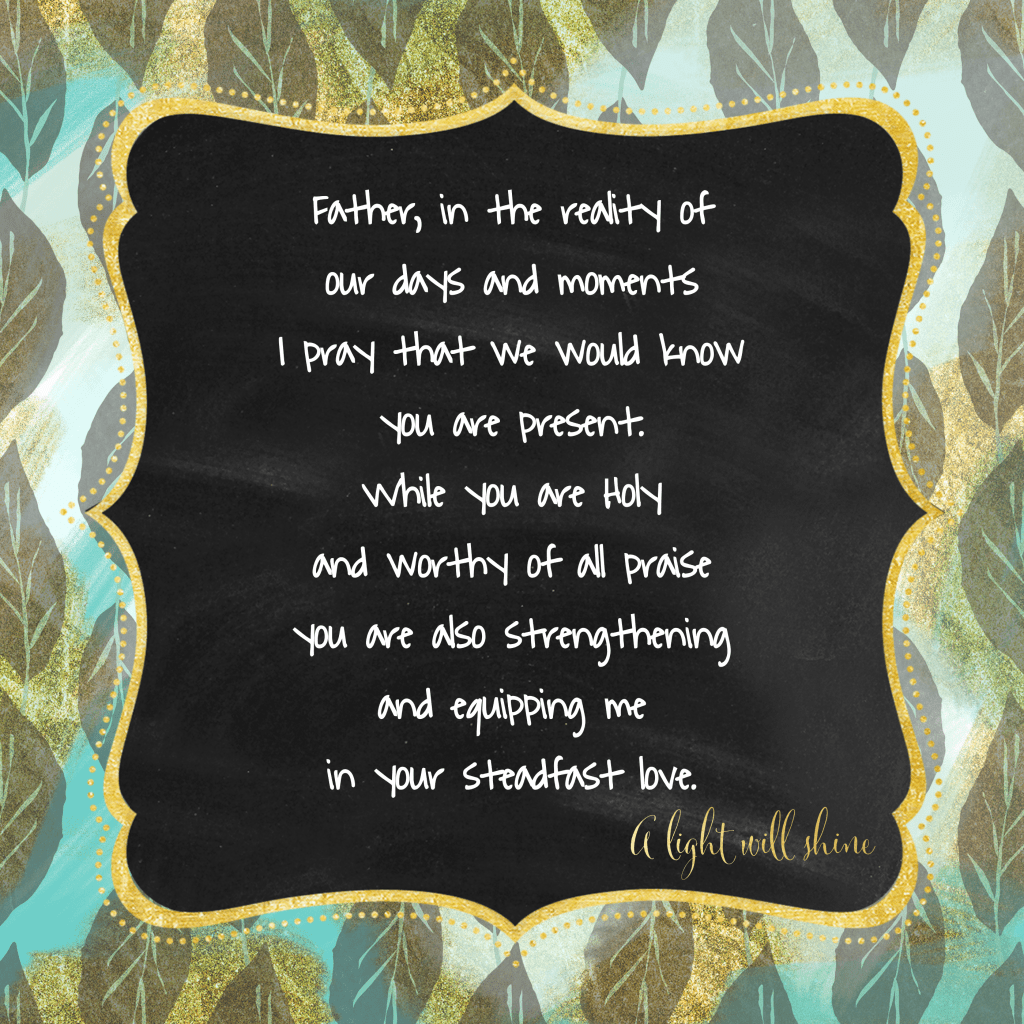 Father, in the reality of
our days and moments
I pray that we would know
you are present.
While you are Holy
and worthy of all praise
you are also strengthening
and equipping me
in your steadfast love.
A light will shine